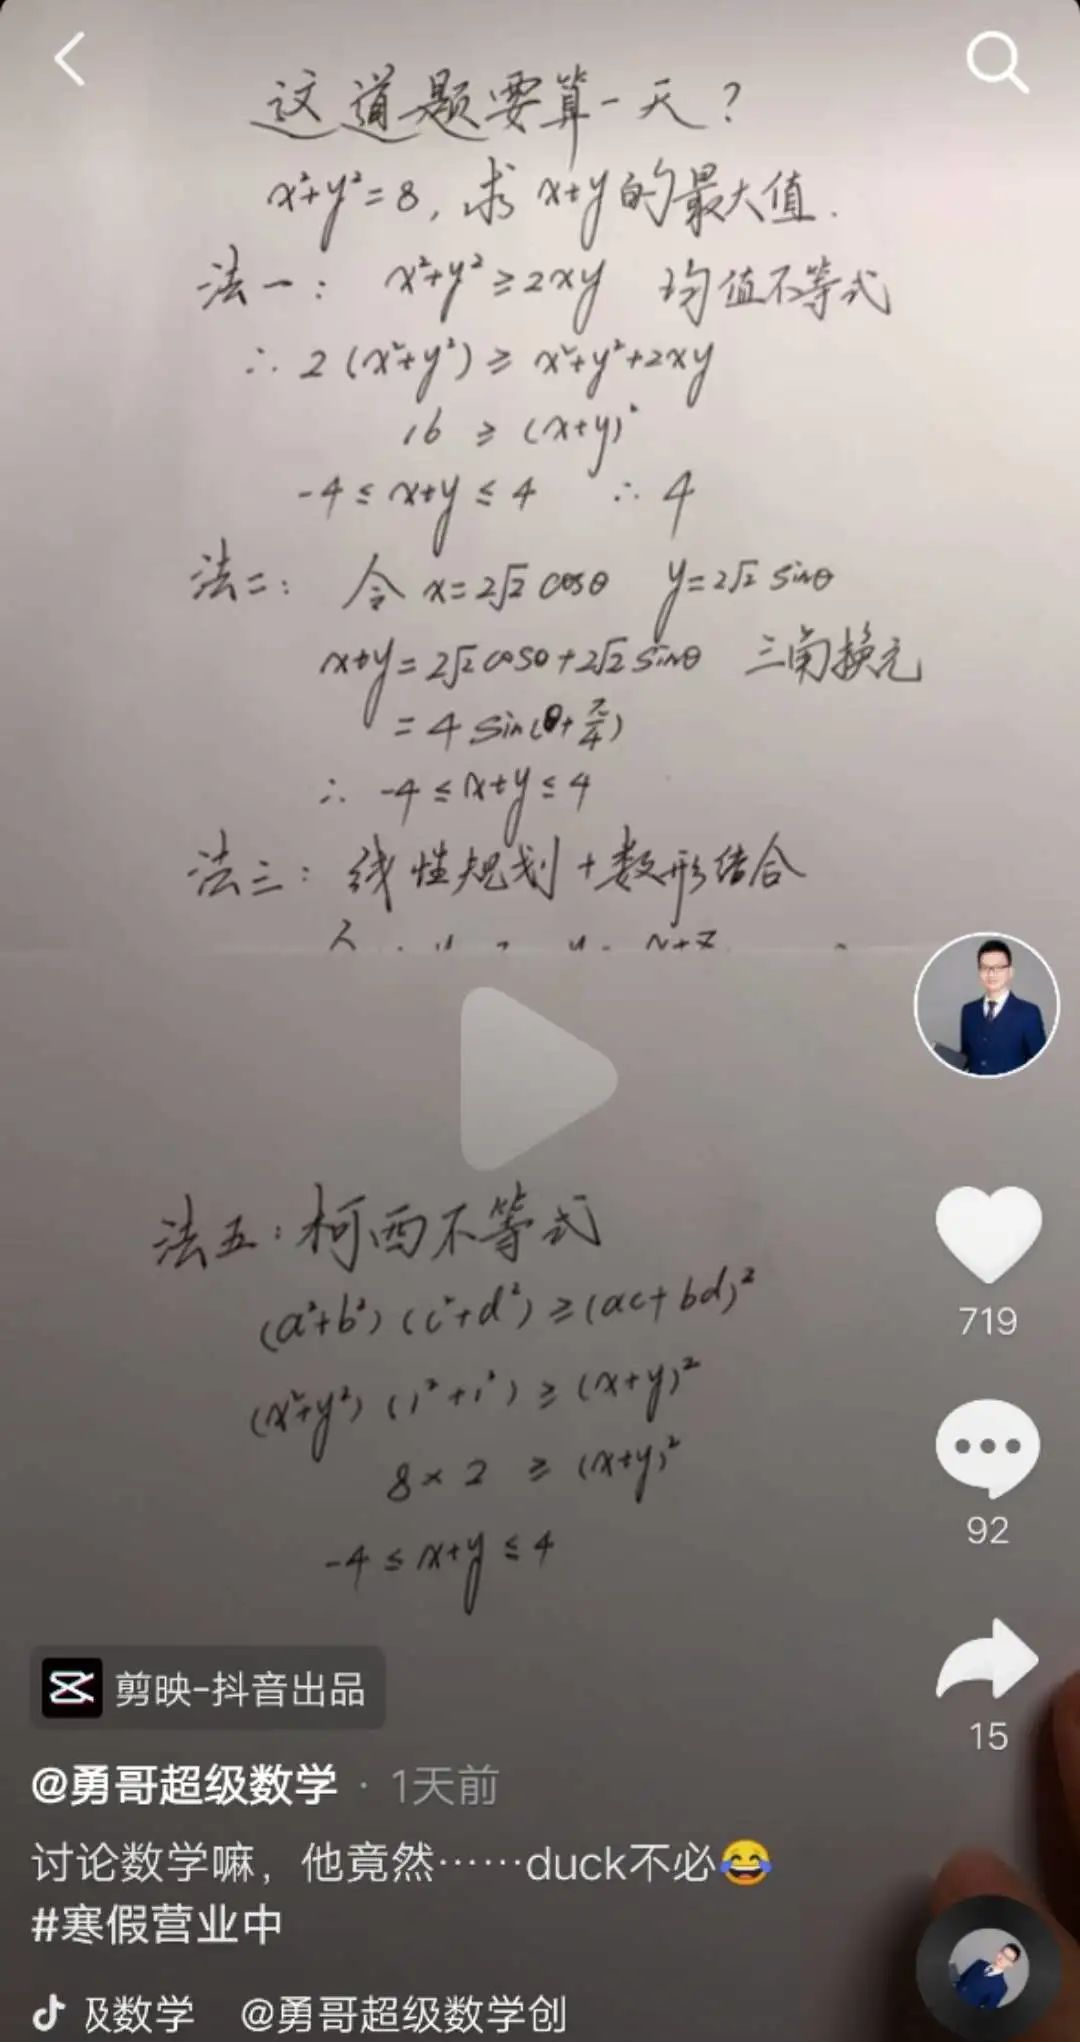 这道题要算一天?
x²+y²=8, 求 x+y 的最大值.
法一: x²+y²≥2xy 均值不等式
∴ 2(x²+y²)≥x²+y²+2xy
16 ≥ (x+y)²
-4≤x+y≤4 ∴ 4
法二: 令 x=2√2 cosθ y=2√2 sinθ
x+y=2√2 cosθ+2√2 sinθ 三角换元
=4 sin(θ+π/4)
∴ -4≤x+y≤4
法三: 线性规划+数形结合
法五: 柯西不等式
(a²+b²)(c²+d²)≥(ac+bd)²
(x²+y²)(1²+1²)≥(x+y)²
8×2 ≥ (x+y)²
-4≤x+y≤4
719
92
15
剪映-抖音出品
@勇哥超级数学 · 1天前
讨论数学嘛，他竟然……duck不必😂
#寒假营业中
及数学 @勇哥超级数学创